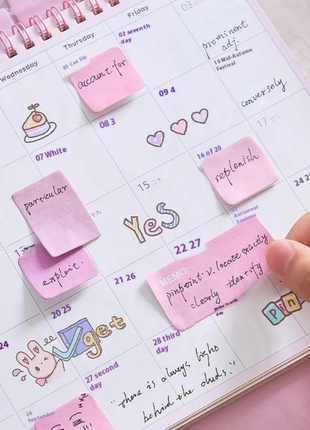 Wednesday
Thursday
Friday
03
01 Cai Sin
02 seventh
day
account for
prominent
adj
10 Mid-Autumn
Festival
07 White
08 3
09 4
conversely
particular
15
16 of 20
replenish
17
Yes
22 27
MEMO:
pinpoint: v. locate exactly
clearly identify
exploit.
20 25
21
23
24 25
get
Pin
27 second
day
28 third
day
"There is always light
behind the clouds."